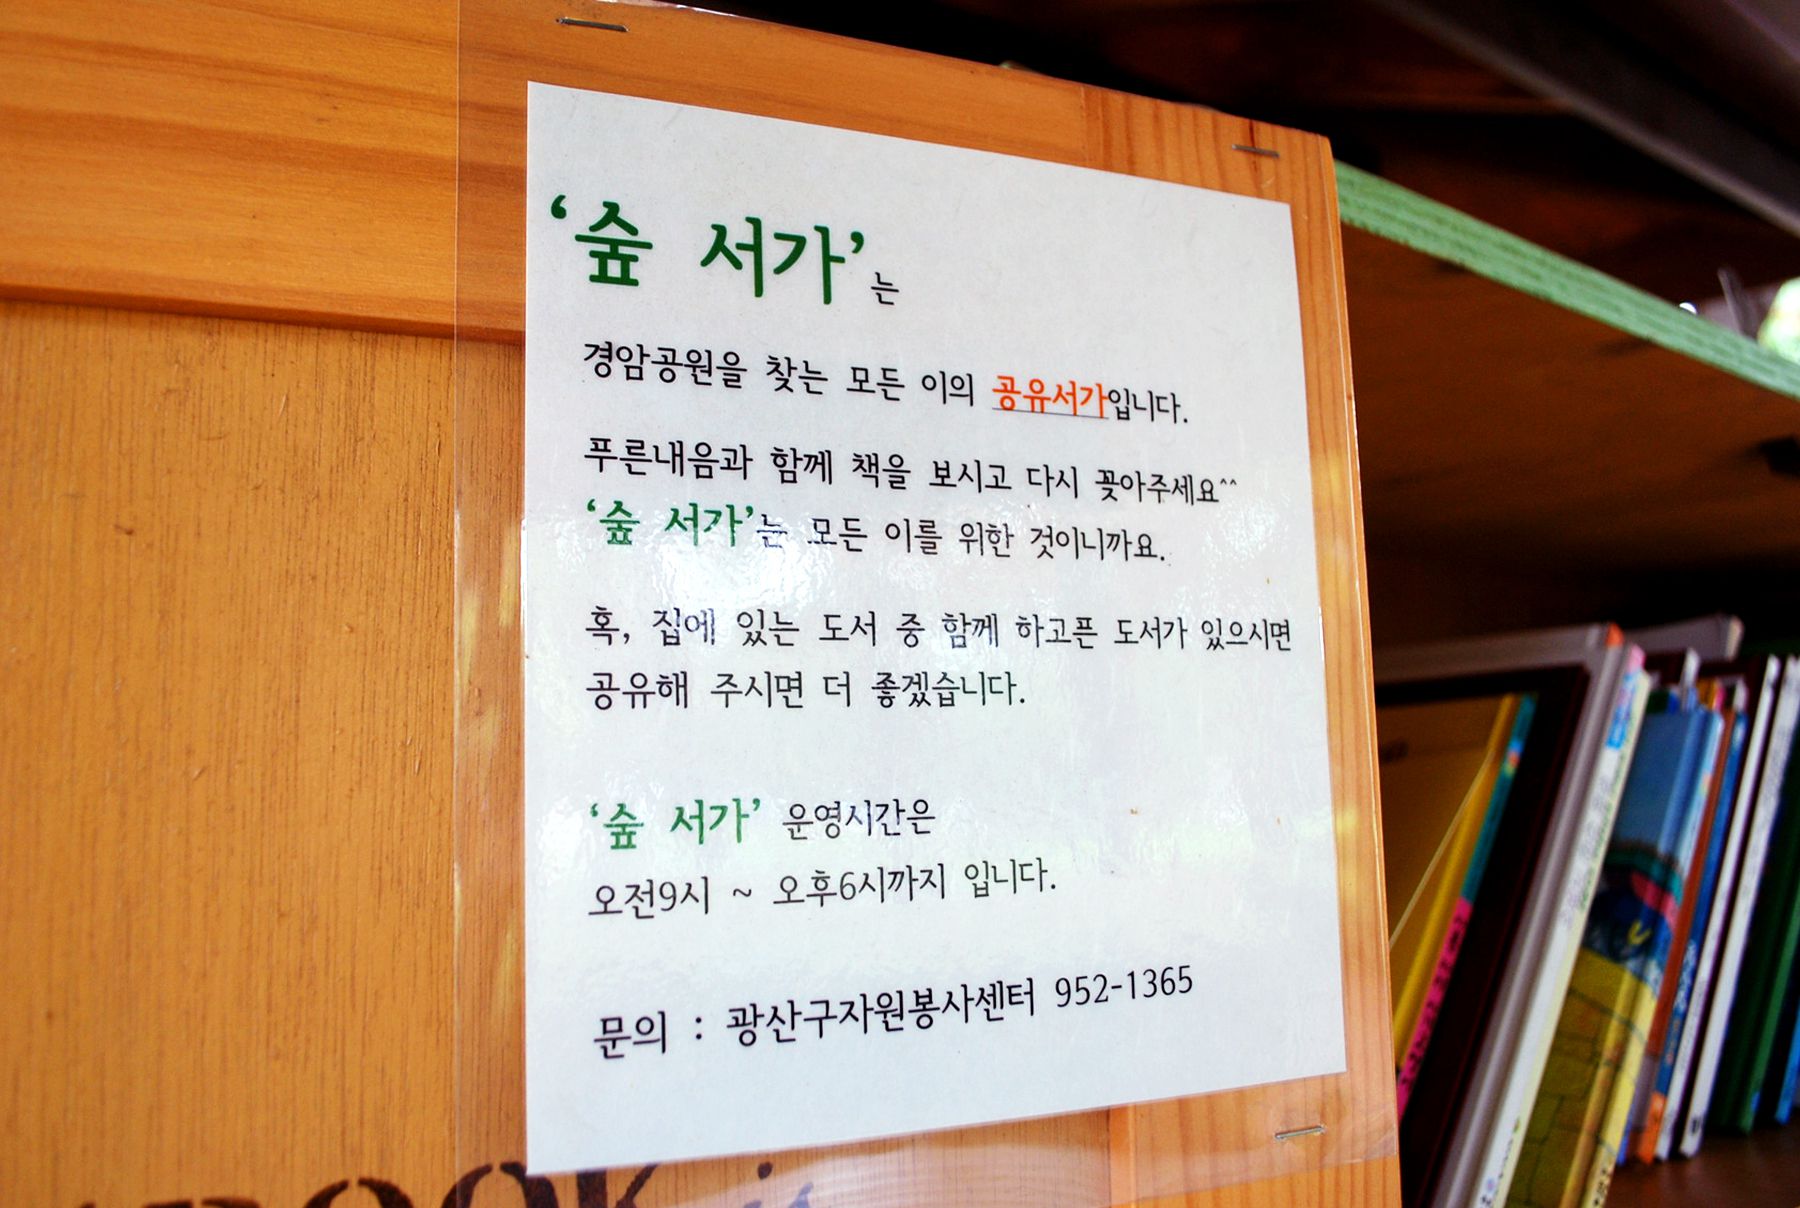 ‘숲 서가’는
경암공원을 찾는 모든 이의 공유서가입니다.
푸른내음과 함께 책을 보시고 다시 꽂아주세요^^
‘숲 서가’는 모든 이를 위한 것이니까요.
혹, 집에 있는 도서 중 함께 하고픈 도서가 있으시면
공유해 주시면 더 좋겠습니다.
‘숲 서가’ 운영시간은
오전9시 ~ 오후6시까지 입니다.
문의 : 광산구자원봉사센터 952-1365
BOOK is